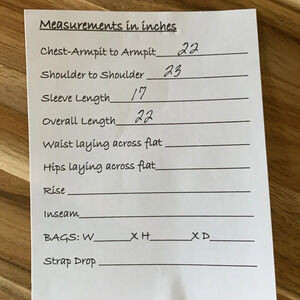 Measurements in inches
Chest-Armpit to Armpit 22
Shoulder to Shoulder 23
Sleeve Length 17
Overall Length 22
Waist laying across flat
Hips laying across flat
Rise
Inseam
BAGS: W______X H______X D______
Strap Drop